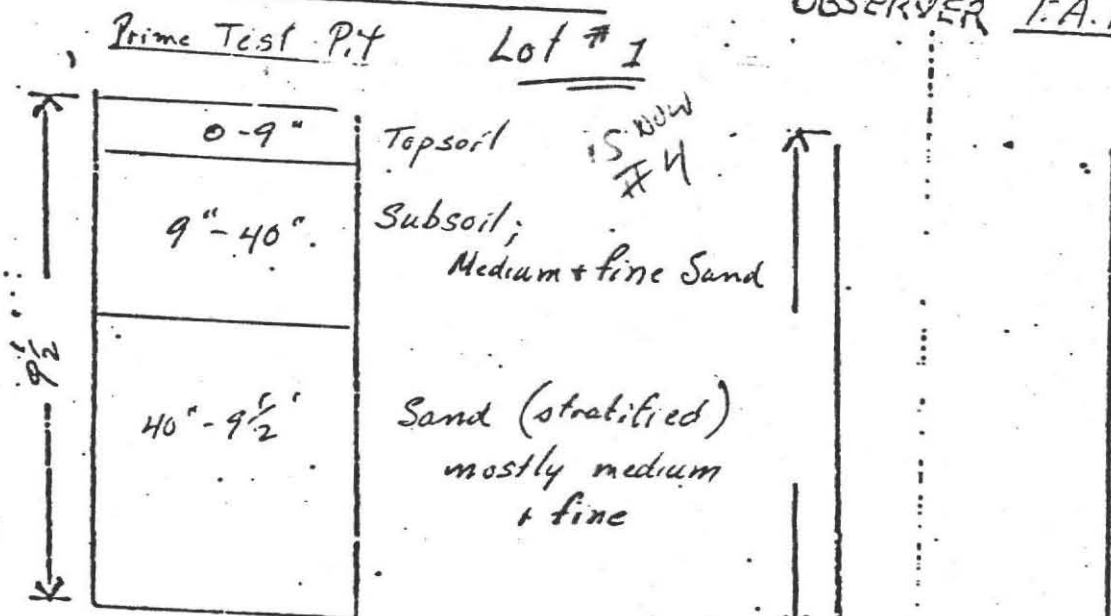 OBSERVER
Prime Test Pit Lot # 1
is now
# 4
0-9" Topsoil
9"-40" Subsoil;
Medium + fine Sand
9 1/2'
40"-9 1/2' Sand (stratified)
mostly medium
+ fine